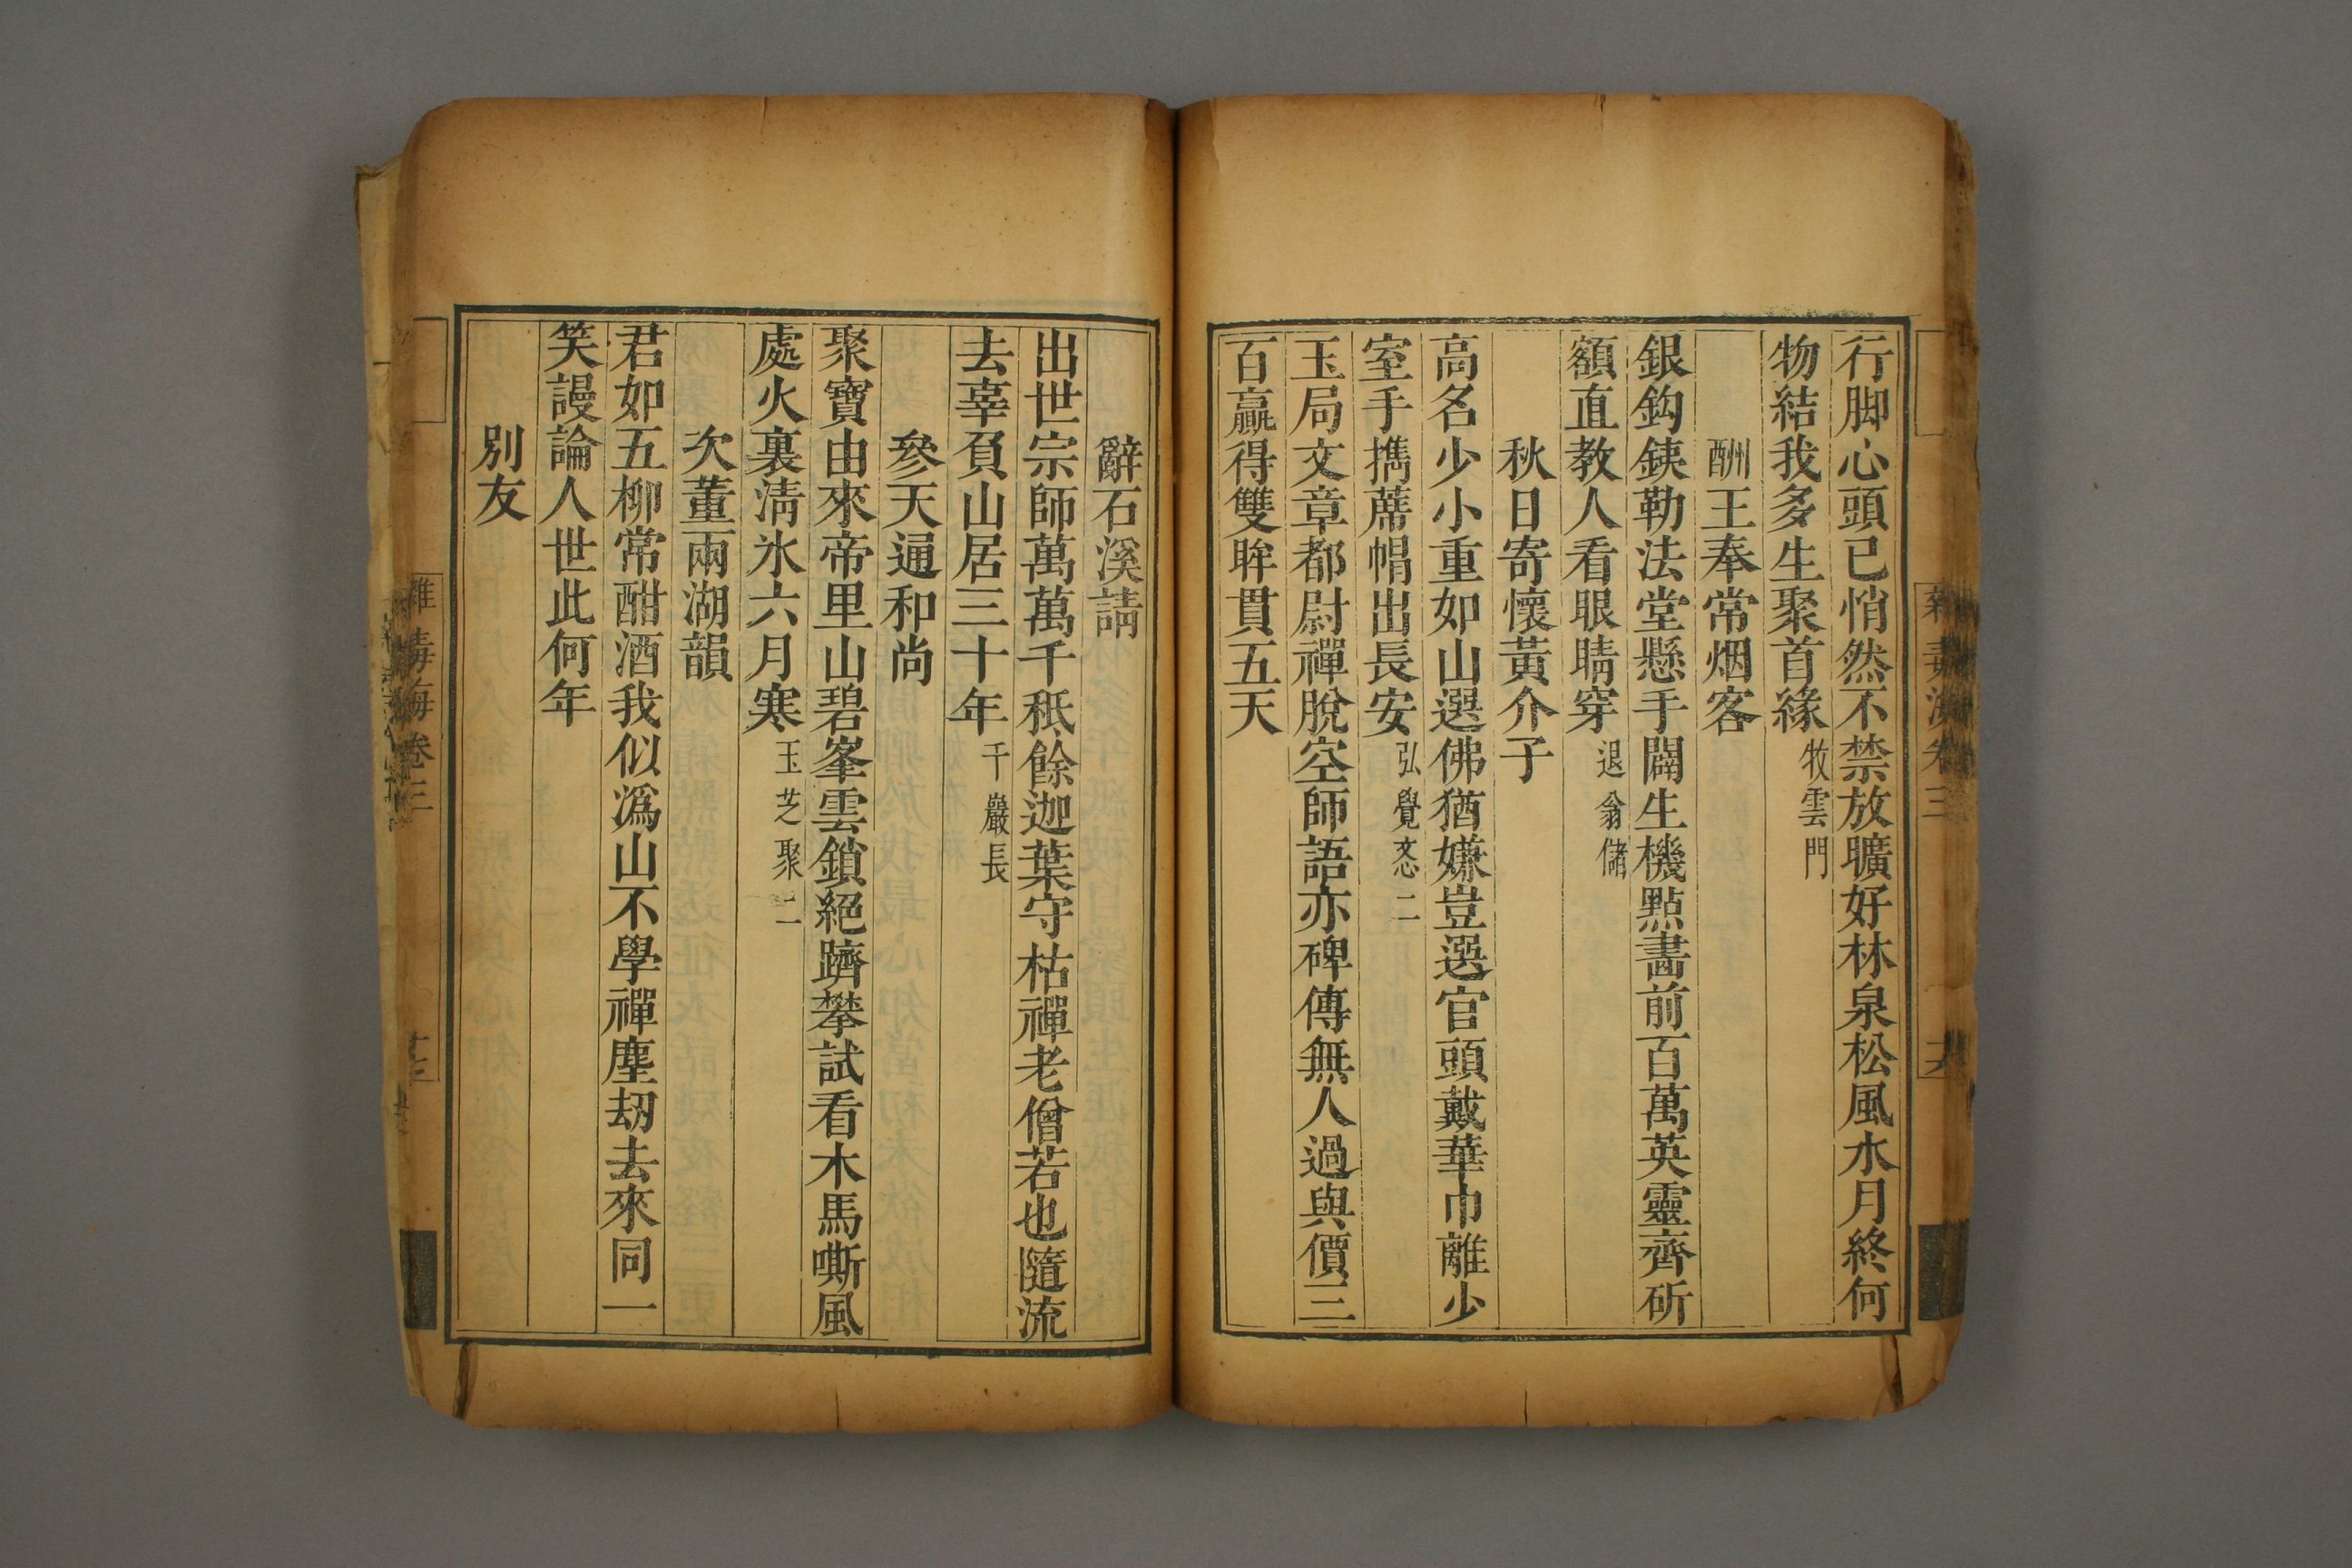 行脚心頭已悄然不禁放曠好林泉松風水月終何
物結我多生聚首緣牧雲門
酬王奉常烟客
銀鈎銕勒法堂懸手闢生機點畵前百萬英靈齊斫
額直教人看眼睛穿退翁儲
秋日寄懷黃介子
高名少小重如山選佛猶嫌豈選官頭戴華巾離少
室手擕蓆帽出長安弘覺忞二
玉局文章都尉禪脫空師語亦碑傳無人過與價三
百贏得雙眸貫五天
辭石溪請
出世宗師萬萬千秪餘迦葉守枯禪老僧若也隨流
去辜負山居三十年千巖長
參天通和尚
聚寶由來帝里山碧峯雲鎖絕躋攀試看木馬嘶風
處火裏淸氷六月寒玉芝聚二
次董兩湖韻
君如五柳常酣酒我似潙山不學禪塵刼去來同一
笑謾論人世此何年
別友